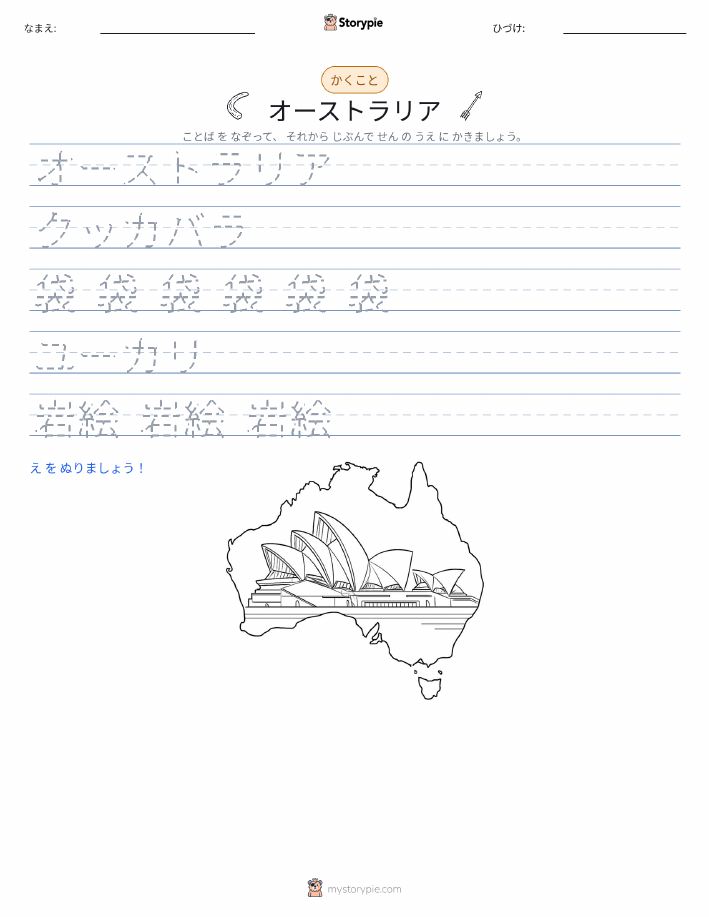 なまえ:
Storypie
ひづけ:
かくこと
オーストラリア
ことば を なぞって、 それから じぶんで せん の うえ に かきましょう。
オーストラリア
クッカバラ
袋 袋 袋 袋 袋 袋
ユーカリ
岩絵 岩絵 岩絵
え を ぬりましょう！
mystorypie.com